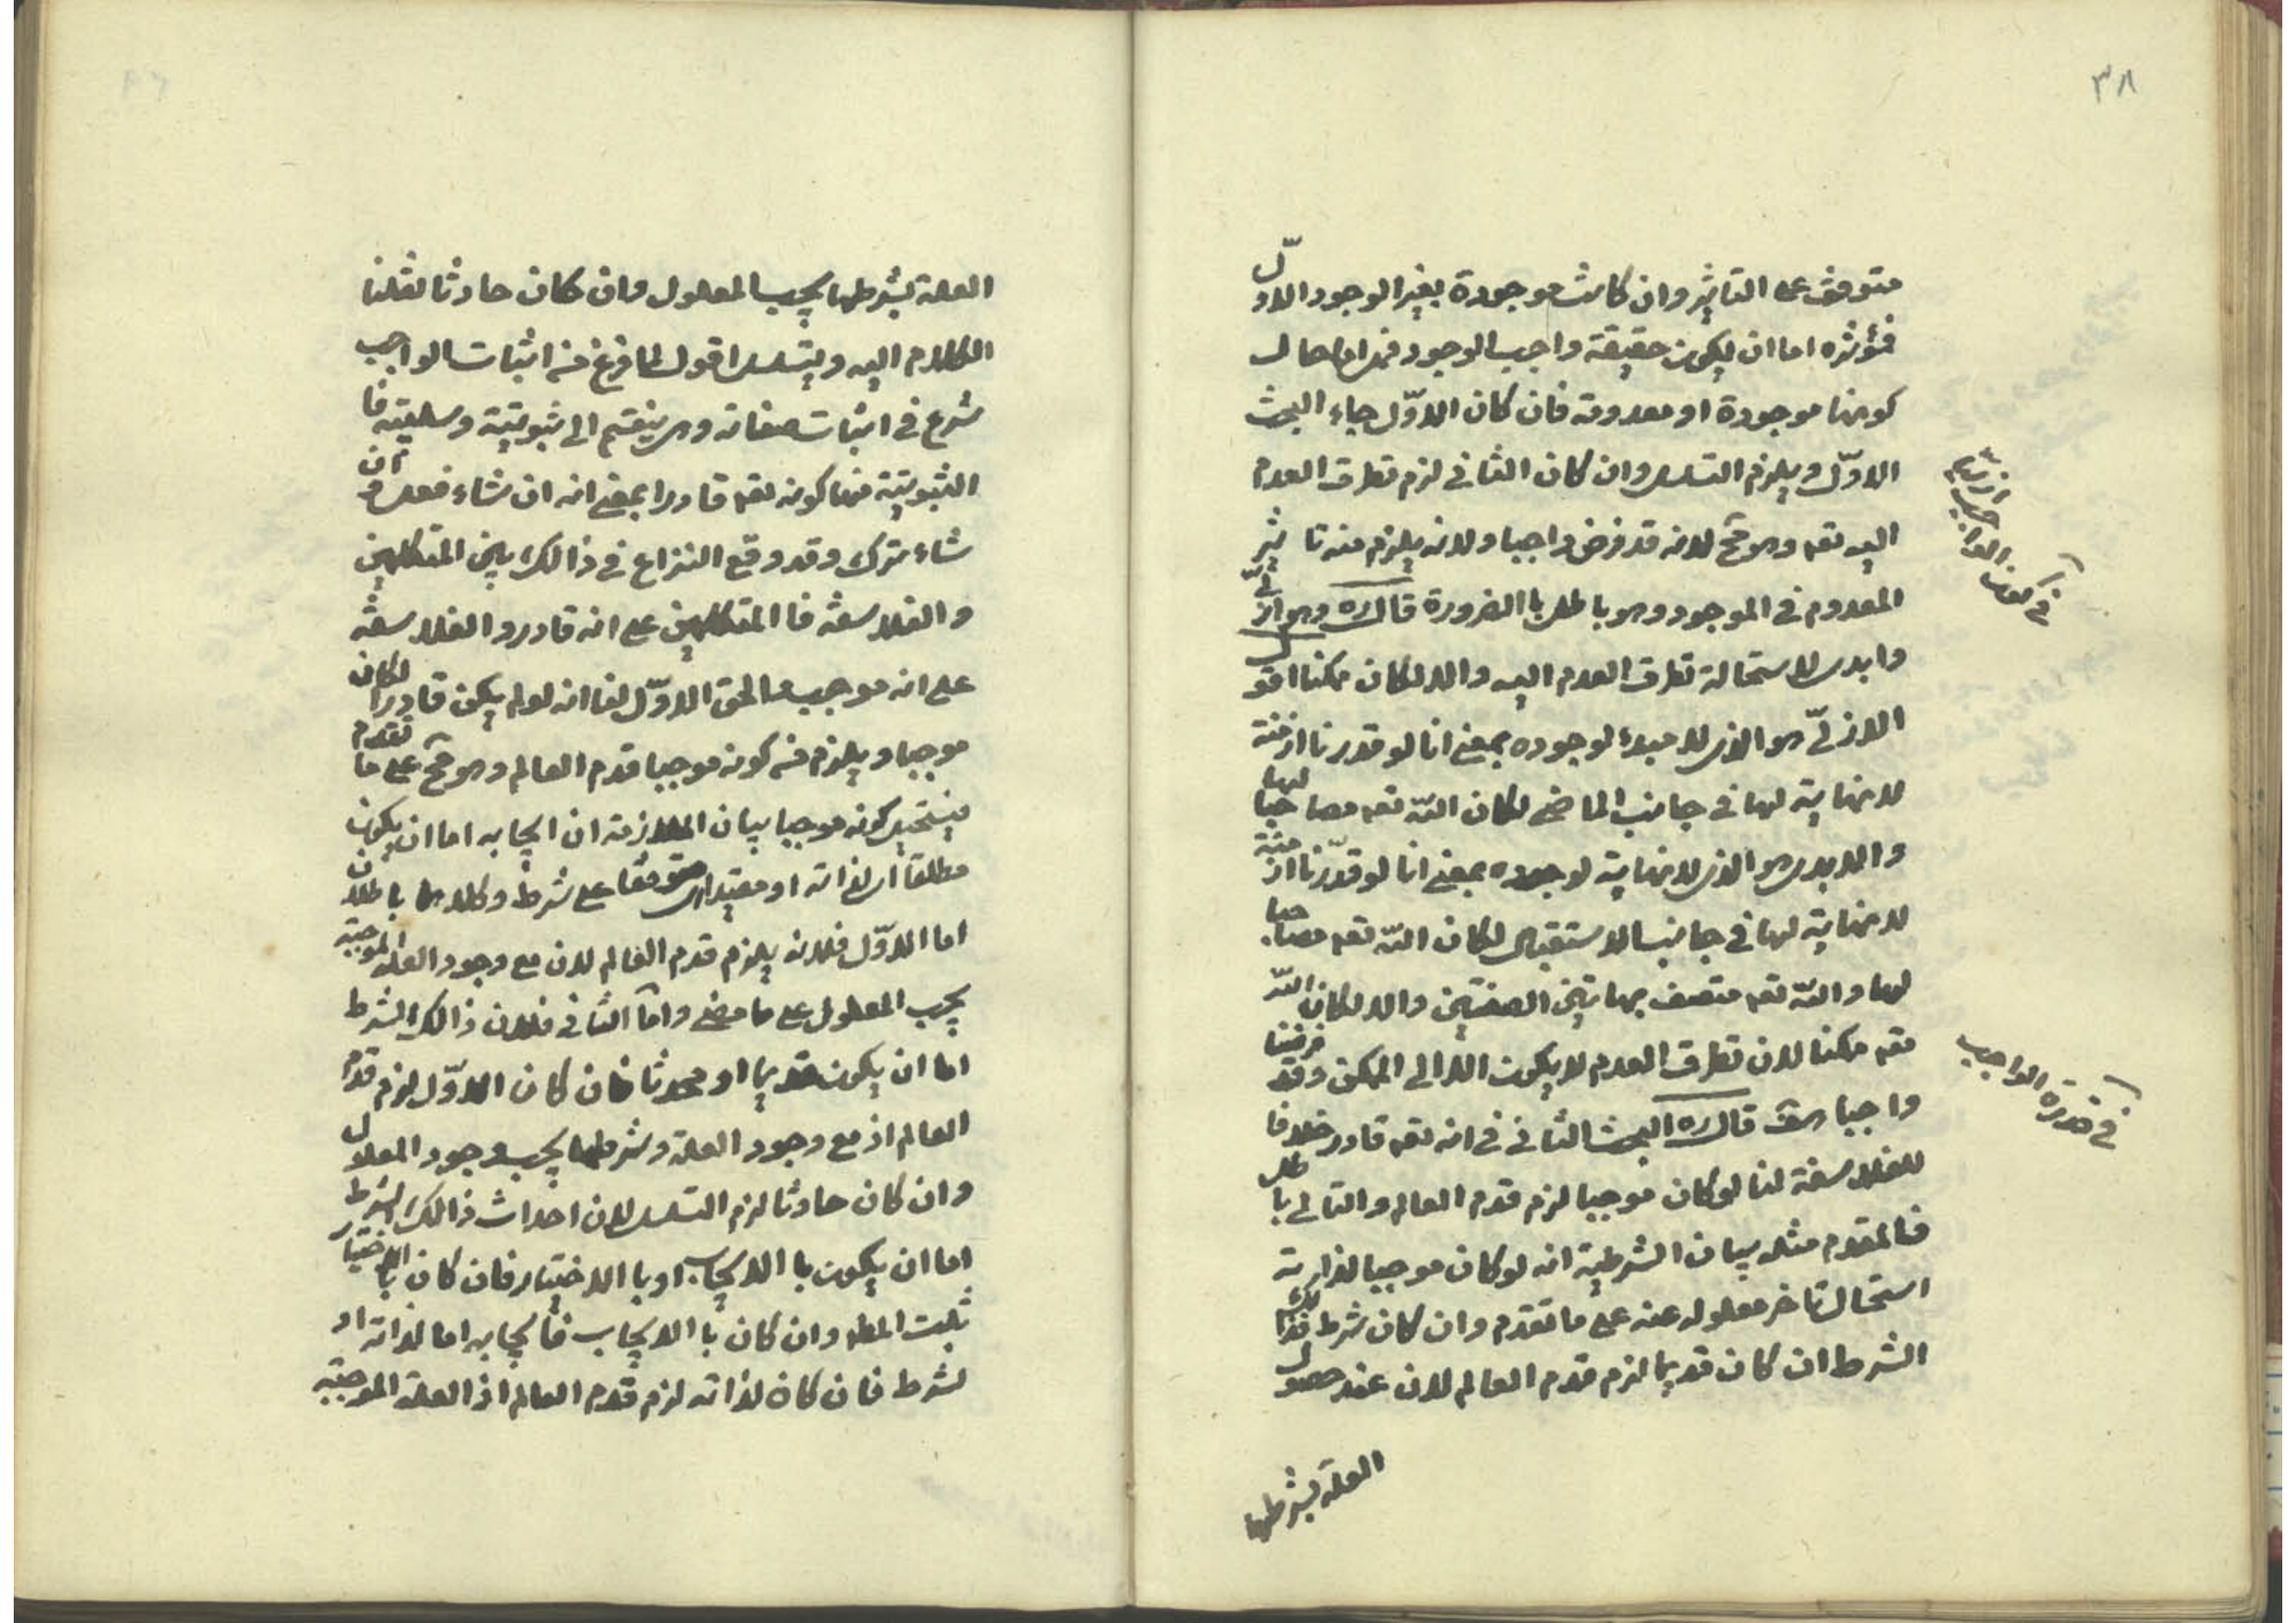 ٣٨
متوقف على التاثير وان كانت موجودة بغير الوجود الاوّل
فمؤثره اما ان يكون حقيقة واجب الوجود فمراها حال
كونها موجودة او معدومة فان كان الاوّل جاء البحث
الاوّل ويلزم التسلسل وان كان الثانى لزم تطرق العدم
اليه تعه وهو مح لانه قد فرض واجبا ولانه يلزم منه تاثير
المعدوم فى الموجود وهو باطل باالضرورة قال ره وهو ازلىّ
وابدى لاستحالة تطرق العدم اليه والا لكان ممكنا اقول
الازلىّ هو الذى لا مبدء لوجوده بمعنى انا لو قدرنا ازمنة
لا نهاية لها فى جانب الماضى لكان اللّه تعه مصاحبا لها
والابدى هو الذى لا نهاية لوجوده بمعنى انا لو قدّرنا ازمنة
لا نهاية لها فى جانب الاستقبال لكان اللّه تعه مصاحبا
لها واللّه تعه متصف بهاتين الصفتين والا لكان اللّه
تعه ممكنا لان تطرق العدم لا يكون الا الى الممكن وقد فرضنا
واجبا هف قال ره البحث الثانى فى انه تعه قادر خلافا
للفلاسفة لنا لو كان موجبا لزم قدم العالم والتالى باطل
فالمقدم مثله بيان الشرطية انه لو كان موجبا لذاته
استحال تاخر معلوله عنه على ما تقدم وان كان شرط فذلك
الشرط ان كان قديما لزم قدم العالم لان عند حصول
العلة بشرطها
فى كون الواجب ازليّا
فى قدرة الواجب
العلة بشرطها يجب المعلول وان كان حادثا نقلنا
الكلام اليه ويتسلسل اقول لما فرغ من اثبات الواجب
شرع فى اثبات صفاته وهى ينقسم الى ثبوتية وسلبية فا
الثبوتية منها كونه تعه قادرا بمعنى انه ان شاء فعل وان
شاء ترك وقد وقع النزاع فى ذالك بين المتكلمين
والفلاسفة فا المتكلمين على انه قادر والفلاسفة
على انه موجب والحق الاوّل لنا انه لو لم يكن قادرا لكان
موجبا ويلزم من كونه موجبا قدم العالم وهو مح على ما تقدم
فيستحيل كونه موجبا بيان الملازمة ان ايجابه اما ان يكون
مطلقا اى لذاته او مقيدا اى متوقفا على شرط وكلاهما باطلان
اما الاوّل فلانه يلزم قدم العالم لان مع وجود العلة الموجبة
يجب المعلول على ما مضى وامّا الثانى فلان ذالك الشرط
اما ان يكون قديما او محدثا فان كان الاوّل لزم قدم
العالم اذ مع وجود العلة وشرطها يجب وجود المعلول
وان كان حادثا لزم التسلسل لان احداث ذالك الشرط
اما ان يكون با الايجاب او با الاختيار فان كان باالاختيار
ثبت المطه وان كان با الايجاب فايجابه اما لذاته او
لشرط فان كان لذاته لزم قدم العالم اذ العلة الموجبة